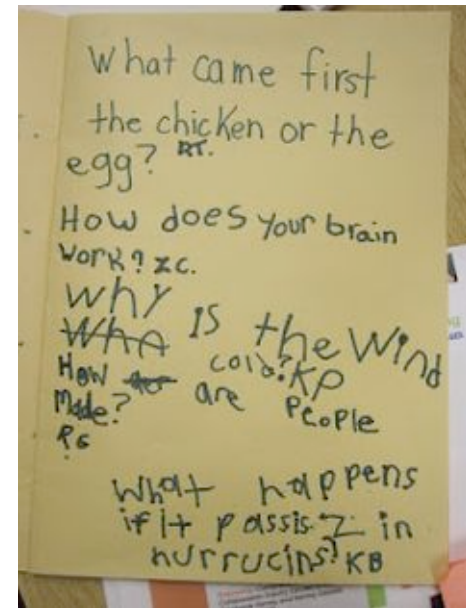 What came first
the chicken or the
egg? RT.
How does your brain
work? ZC.
Why
Is the Wind
cold? KP
How are People
Made?
RG
What happens
if it passis Z in
hurrucins? KB